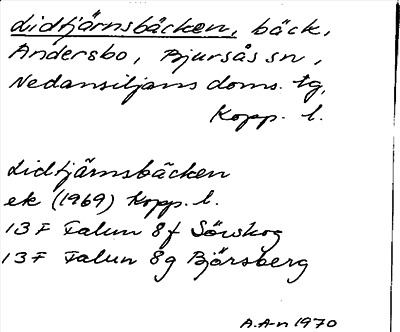 Lidtjärnsbäcken, bäck,
Andersbo, Bjursås sn,
Nedansiljans doms. tg,
Kopp. l.
Lidtjärnsbäcken
ek (1969) Kopp. l.
13 F Falun 8 f Sörskog
13 F Falun 8 g Bjärsberg
A.A-n 1970